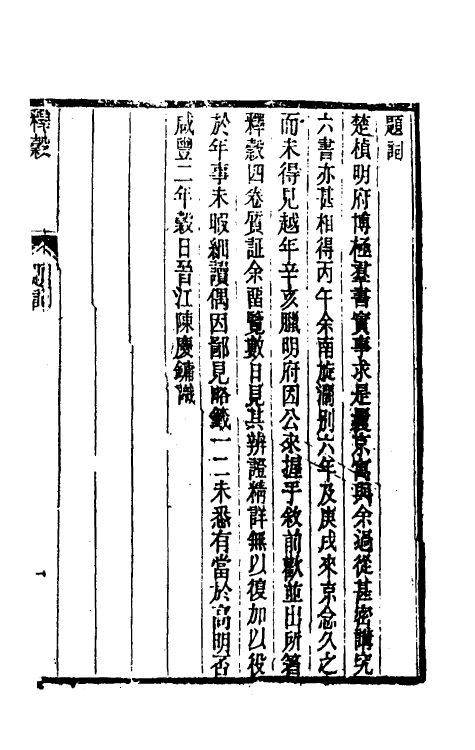 題詞
楚楨明府博極羣書實事求是曩京寓與余過從甚密講究
六書亦甚相得丙午余南旋濶別六年及庚戌來京念久之
而未得見越年辛亥臘明府因公來握手敘前歡並出所箸
釋穀四卷質証余畱覽數日見其辨證精詳無以復加以役
於年事未暇細讀偶因鄙見略籤一二未悉有當於高明否
咸豐二年穀日晉江陳慶鏞識
釋穀
題詞
一